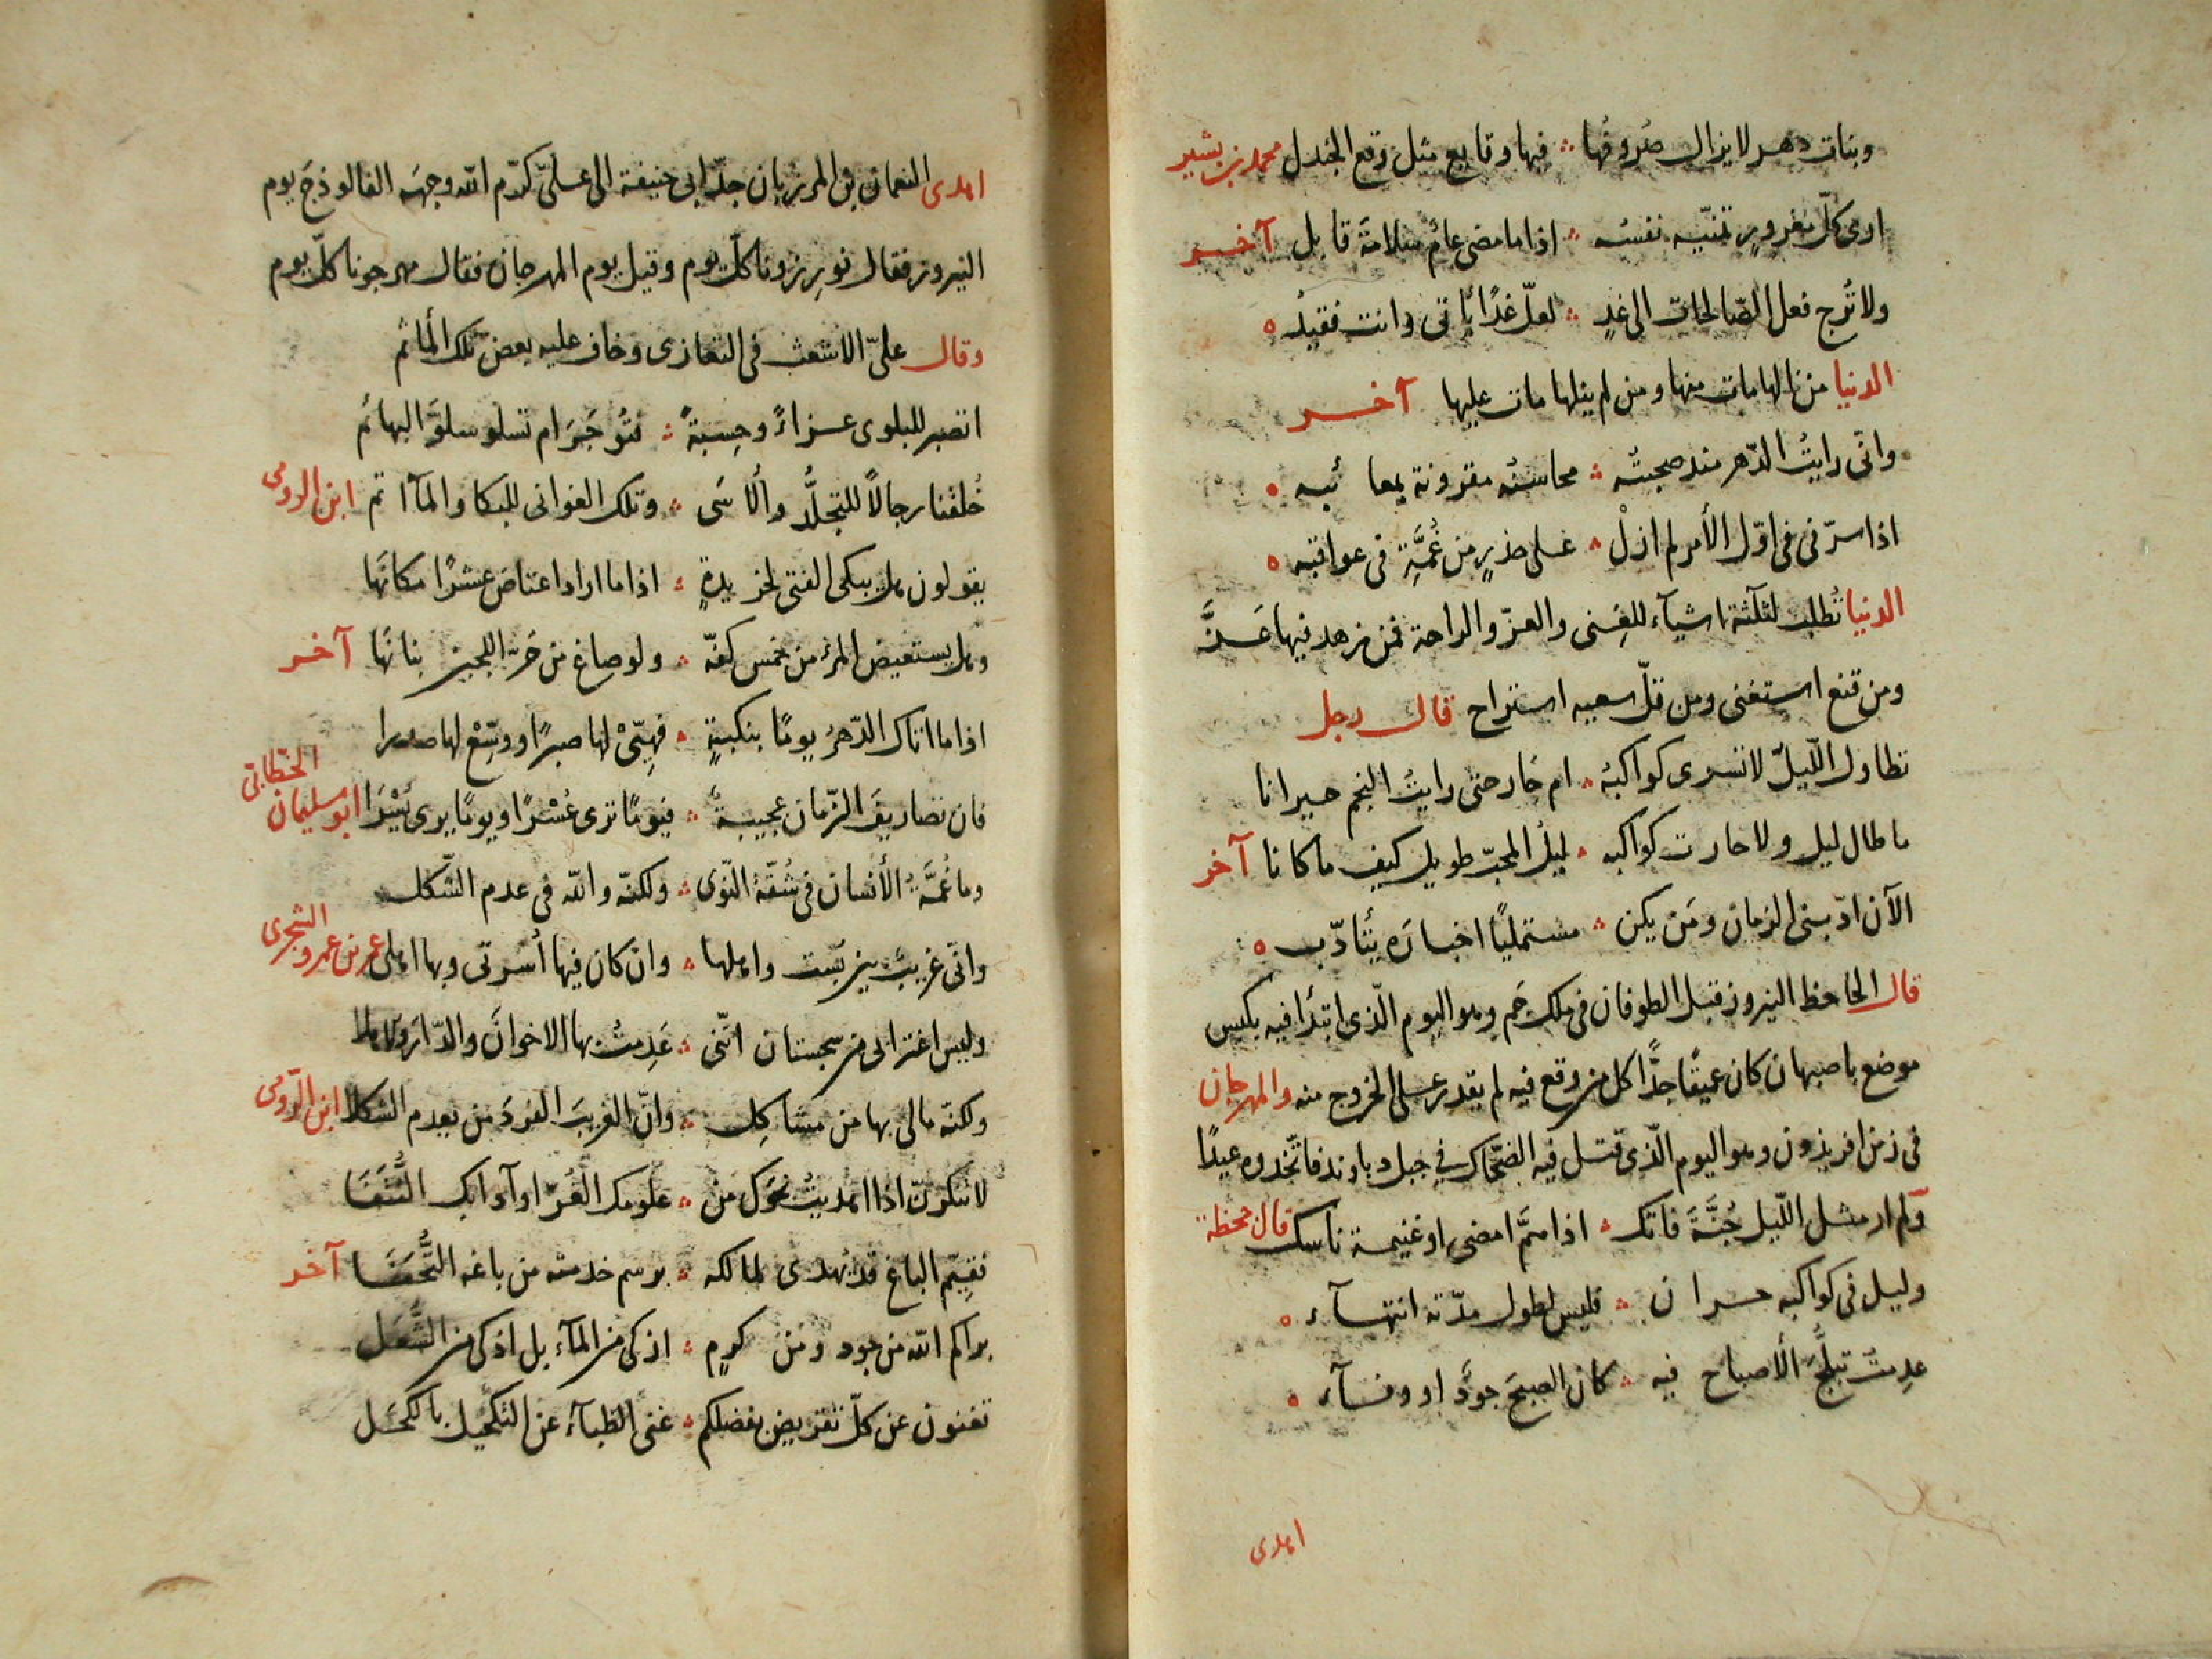 وبنات دهر لا يزال صُروفُها ؞ فيها وقايع مثل وقع الجندل محمد بن بشير
ارى كلّ مغرورٍ تمنّيه نفسُه ؞ اذا ما مضى عامٌ سلامةَ قابل آخر
ولا تُرج فعل الصّالحات الى غدٍ ؞ لعلّ غدًا ياتى وانت فقيدُ ه
الدنيا من نالها مات منها ومن لم ينلها مات عليها آخر
وانّى رايتُ الدّهر منذ صحبتُه ؞ محاسنُه مقرونة بمعا ئبه ه
اذا سرّنى فى اوّل الأمر لم ازلْ ؞ على حذرٍ من غُمَّةٍ فى عواقبه ه
الدنيا تُطلب لثلثة اشيآء للغِنى والعزّ والراحة فمن زهد فيها عَزَّ
ومن قنع استغنى ومن قلّ سعيه استراح قال رجل
تطاول اللّيلُ لا تسرى كواكبهُ ؞ ام حَار حتى رايتُ النجم حيرانا
ما طال ليل ولا حارت كواكبه ؞ ليلُ المحبّ طويل كيف ما كانا آخر
الآن ادّبنى الزمان ومَن يكن ؞ مستمليًا اخبارَه يتأدّب ه
قال الجاحظ النيروز قبل الطوفان فى ملك جَم وهو اليوم الّذى ابتدأ فيه بكبس
موضع باصبهان كان عميقًا جدًّا كل من وقع فيه لم يقدر على الخروج منه والمهرجان
فى زمن افريذون وهو اليوم الّذى قتل فيه الضحّاك فى جبل دباوند فاتّخذوه عيدًا
ولم ار مثل اللّيل جُنَّةَ فاتك ؞ اذا همَّ امضى او غنيمة ناسك قال جحظة
وليل فى كواكبه حران ؞ فليس لطول مدّته انتهآء ه
عدِمتُ تبلُّجَ الأصباح فيه ؞ كان الصبحَ جودٌ او وفآء ه
اهدى
اهدى النعمان بن المرزبان جدّ ابى حنيفة الى علىّ كرّم الله وجهَه الفالوذجَ يوم
النيروز فقال نورِزونا كلّ يوم وقيل يوم المهرجان فقال مهرجونا كلّ يوم
وقال علىّ الاشعث فى التعازى وخاف عليه بعضَ تلك المأثم
اتصبر للبلوى عزاءً وحِسبةً ؞ فتُوجَرَ ام تسلو سلوَّ البهائمُ
خُلقنا رجالاً للتجلُّد والأسَى ؞ وتلك الغوانى للبكا والمآ تم ابن الرومى
يقولون هل يبكى الفتى لخريدةٍ ؞ اذا ما اراد اعتاض عشرًا مكانَها
وهل يستعيض المرءُ من خمس كفّه ؞ ولو صاغ من حَرّ اللجين بنانَها آخر
اذا ما اتاك الدّهرُ يومًا بنكبةٍ ؞ فهيّئْ لها صبرًا ووسّعْ لها صدرا
فان تصاريفَ الزّمان عجيبةٌ ؞ فيومًا ترى عُسْرًا ويومًا يرى يُسْرَا ابو سليمان الخطّابى
وما غُمَّةُ الأنسان فى شُقّة النّوى ؞ ولكنّه والله فى عدم الشّكل
وانّى غريبٌ بين بُست واهلها ؞ وان كان فيها اُسرتى وبها اهلى عمر بن عمرو الشجرى
وليس اغترابى من سجستان انّنى ؞ عَدِمتُ بها الاخوانَ والدّارَ والاهلا
ولكنّه مالى بها من مشاكِل ؞ وانّ الغريبَ الفردَ من يعدم الشكلا ابن الرّومى
لا تنكرنّ اذا اهديتُ نحوك من ؞ علومك الغُرّ او آدابك النُّتَفَا
فقيّم الباغ قد يُهدى لمالكه ؞ برسم خدمته من باغه التُّحَفَا آخر
براكم الله من جود ومن كرمٍ ؞ اذكى من المآء بل اذكى من الشُّعَل
تغنون عن كلّ تقريض بفضلكم ؞ غنى الظبآء عن التكحيل بالكحَل